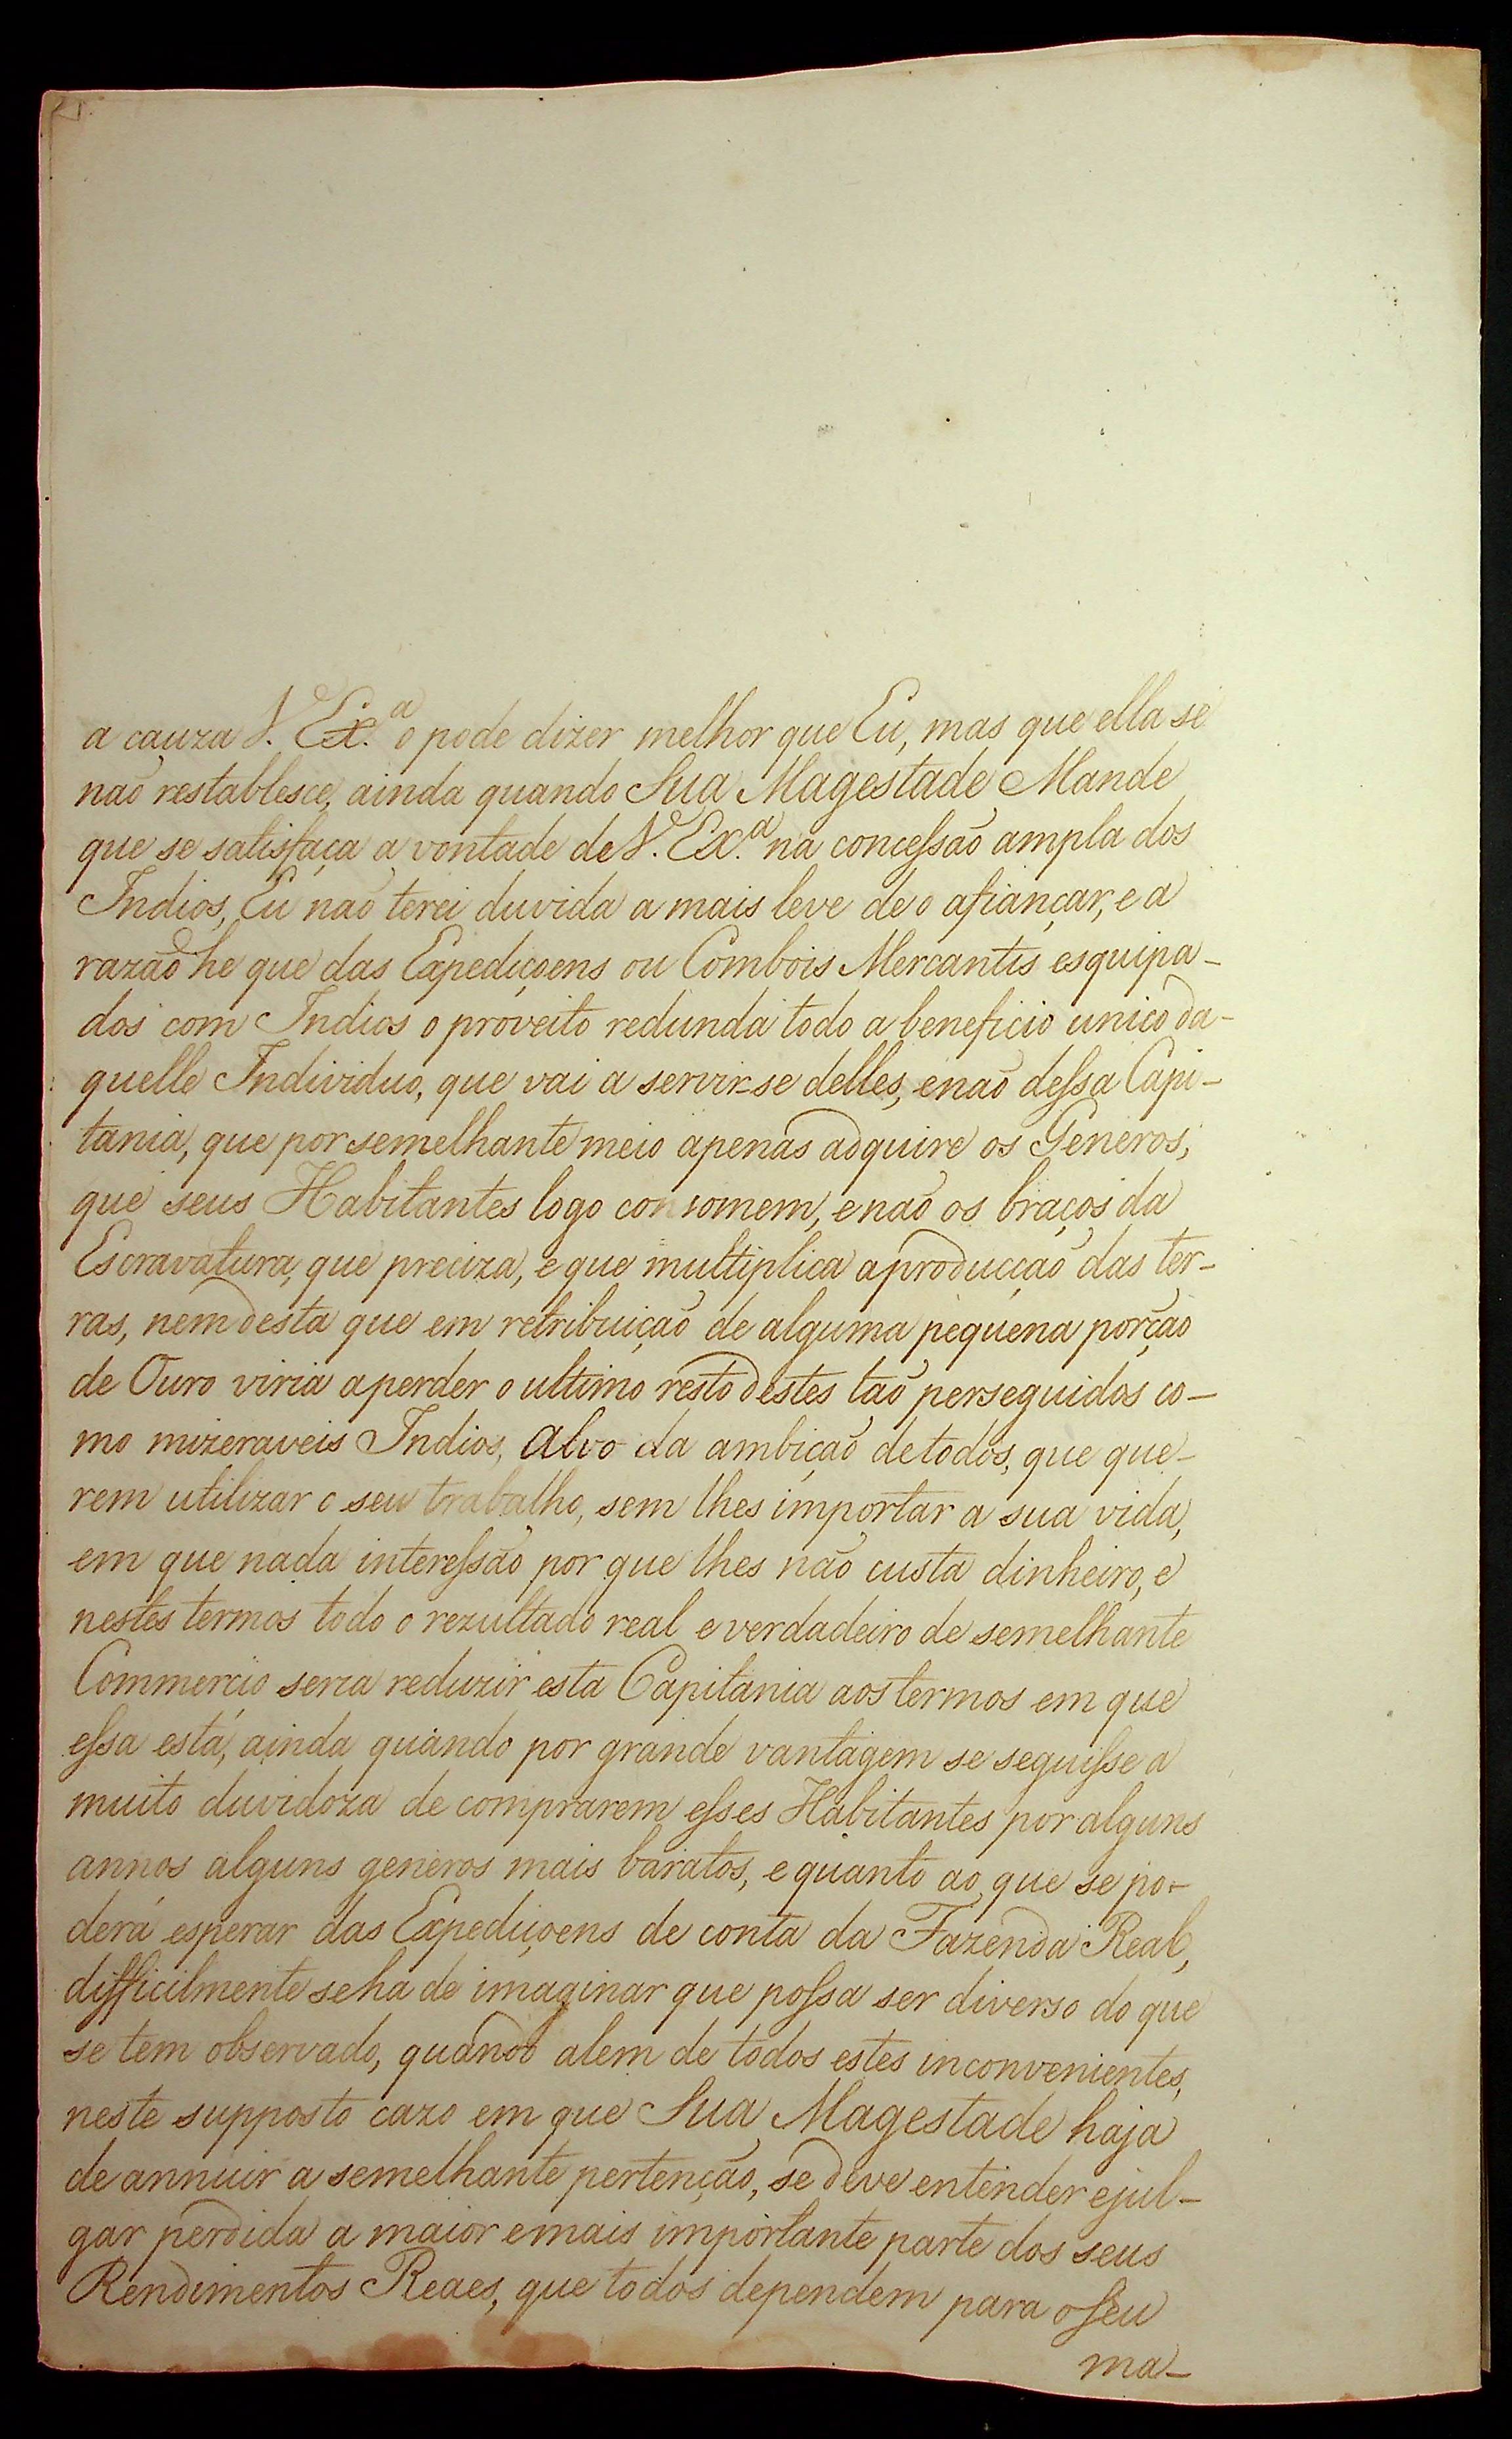 a cauza V. Ex.ª o pode dizer melhor que Eu, mas que ella se
naõ restablesce, ainda quando Sua Magestade Mande
que se satisfaça a vontade de V. Ex.ª na conceſsaõ ampla dos
Indios, Eu naõ terei duvida a mais leve de o afiançar, e a
razaõ he que das Expediçoens ou Combois Mercantis esquipa-
dos com Indios o proveito redunda todo a beneficio unico da-
quelle Individuo, que vai a servir-se delles, enaõ deſsa Capi-
tania, que por semelhante meio apenas adquire os Generos,
que seus Habitantes logo consomem, e naõ os braços da
Escravatura, que preciza, e que multiplica aproducçaõ das ter-
ras, nem desta que em retribuiçaõ de alguma pequena porçaõ
de Ouro viria aperder o ultimo resto destes taõ perseguidos co-
mo mizeraveis Indios, alvo da ambiçaõ detodos, que que-
rem utilizar o seu trabalho, sem lhes importar a sua vida,
em que nada intereſsaõ por que lhes naõ custa dinheiro, e
nestes termos todo o rezultado real e verdadeiro de semelhante
Commercio seria reduzir esta Capitania aos termos em que
eſsa está, ainda quando por grande vantagem se seguiſse a
muito duvidoza de comprarem eſses Habitantes por alguns
annos alguns generos mais baratos, e quanto ao que se po-
derá esperar das Expediçoens de conta da Fazenda Real,
difficilmente seha de imaginar que poſsa ser diverso do que
se tem observado, quando alem de todos estes inconvenientes,
neste supposto cazo em que Sua Magestade haja
de annuir a semelhante pertençaõ, se deve entender ejul-
gar perdida a maior emais importante parte dos seus
Rendimentos Reaes, que todos dependem para oſeu
ma-